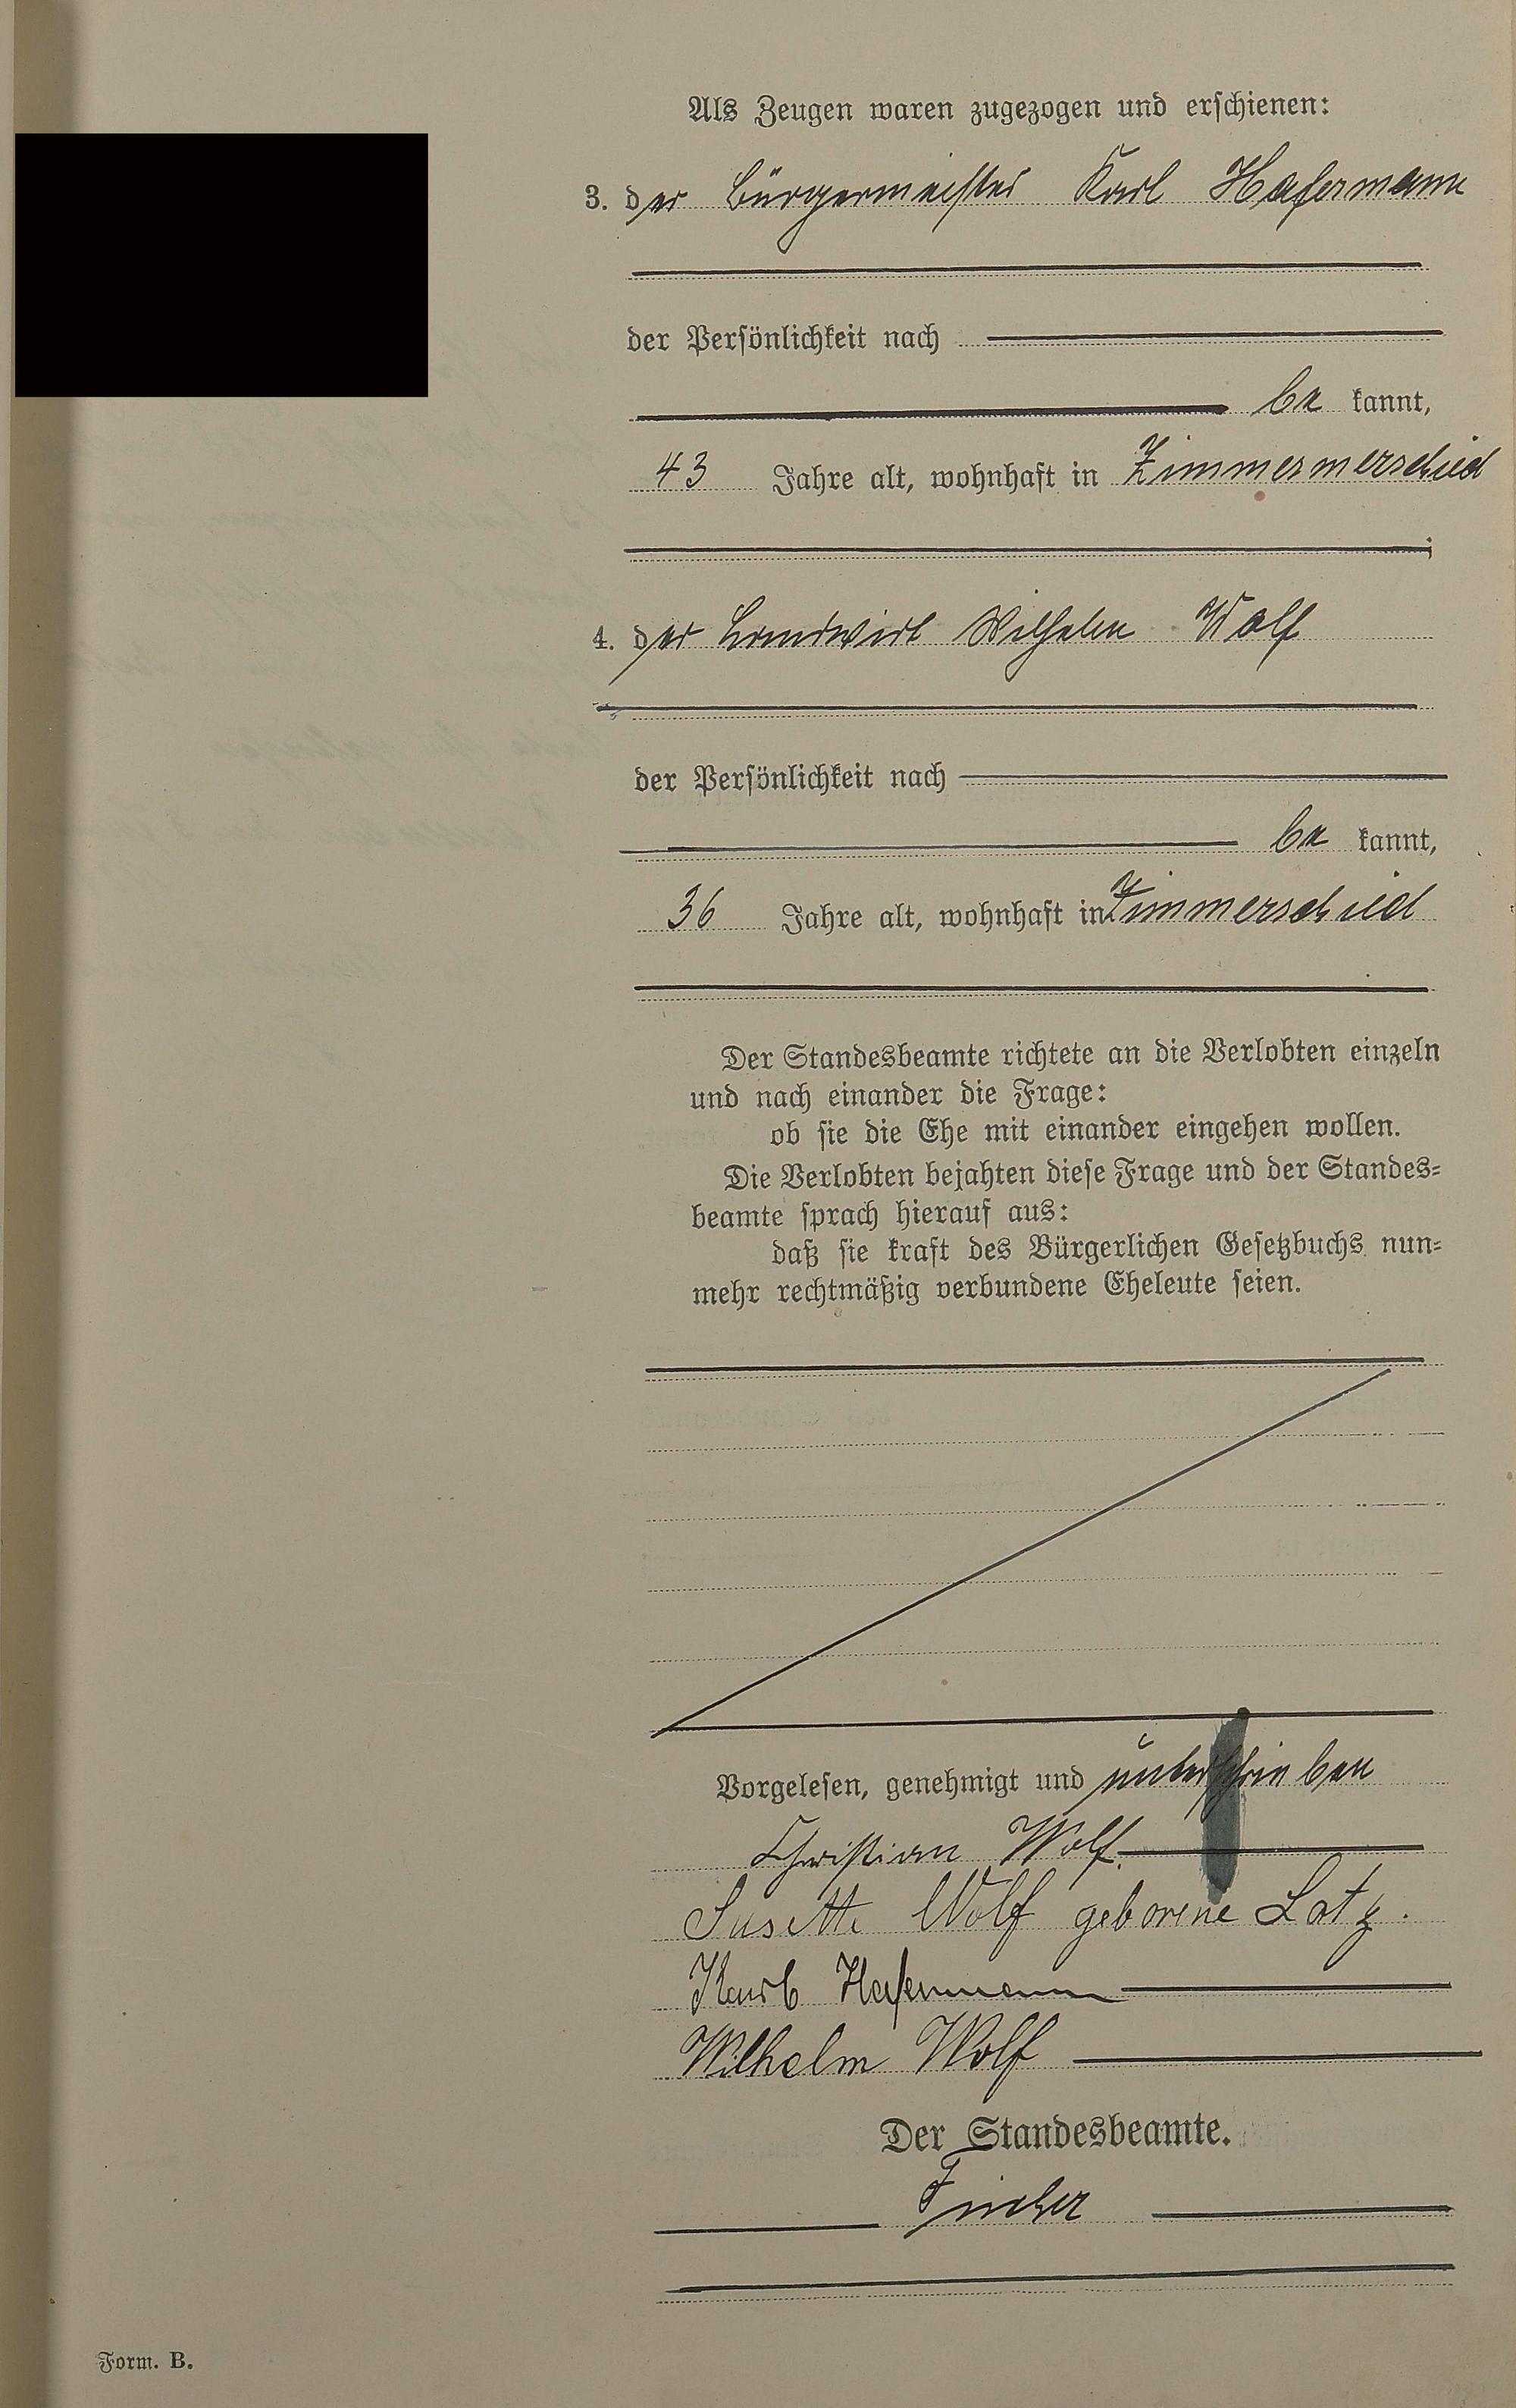 Als Zeugen waren zugezogen und erschienen:
3. der Bürgermeister Karl Hafermann
der Persönlichkeit nach
be kannt,
43 Jahre alt, wohnhaft in Zimmermerschied
;
4. der Landwirt Wilhelm Wolf
der Persönlichkeit nach
be kannt,
36 Jahre alt, wohnhaft in Zimmerschied
Der Standesbeamte richtete an die Verlobten einzeln
und nach einander die Frage:
ob sie die Ehe mit einander eingehen wollen.
Die Verlobten bejahten diese Frage und der Standes=
beamte sprach hierauf aus:
daß sie kraft des Bürgerlichen Gesetzbuchs nun=
mehr rechtmäßig verbundene Eheleute seien.
Vorgelesen, genehmigt und unterschrieben
Christian Wolf.
Susette Wolf geborene Lotz.
Karl Hafermann
Wilhelm Wolf
Der Standesbeamte.
Form. B.